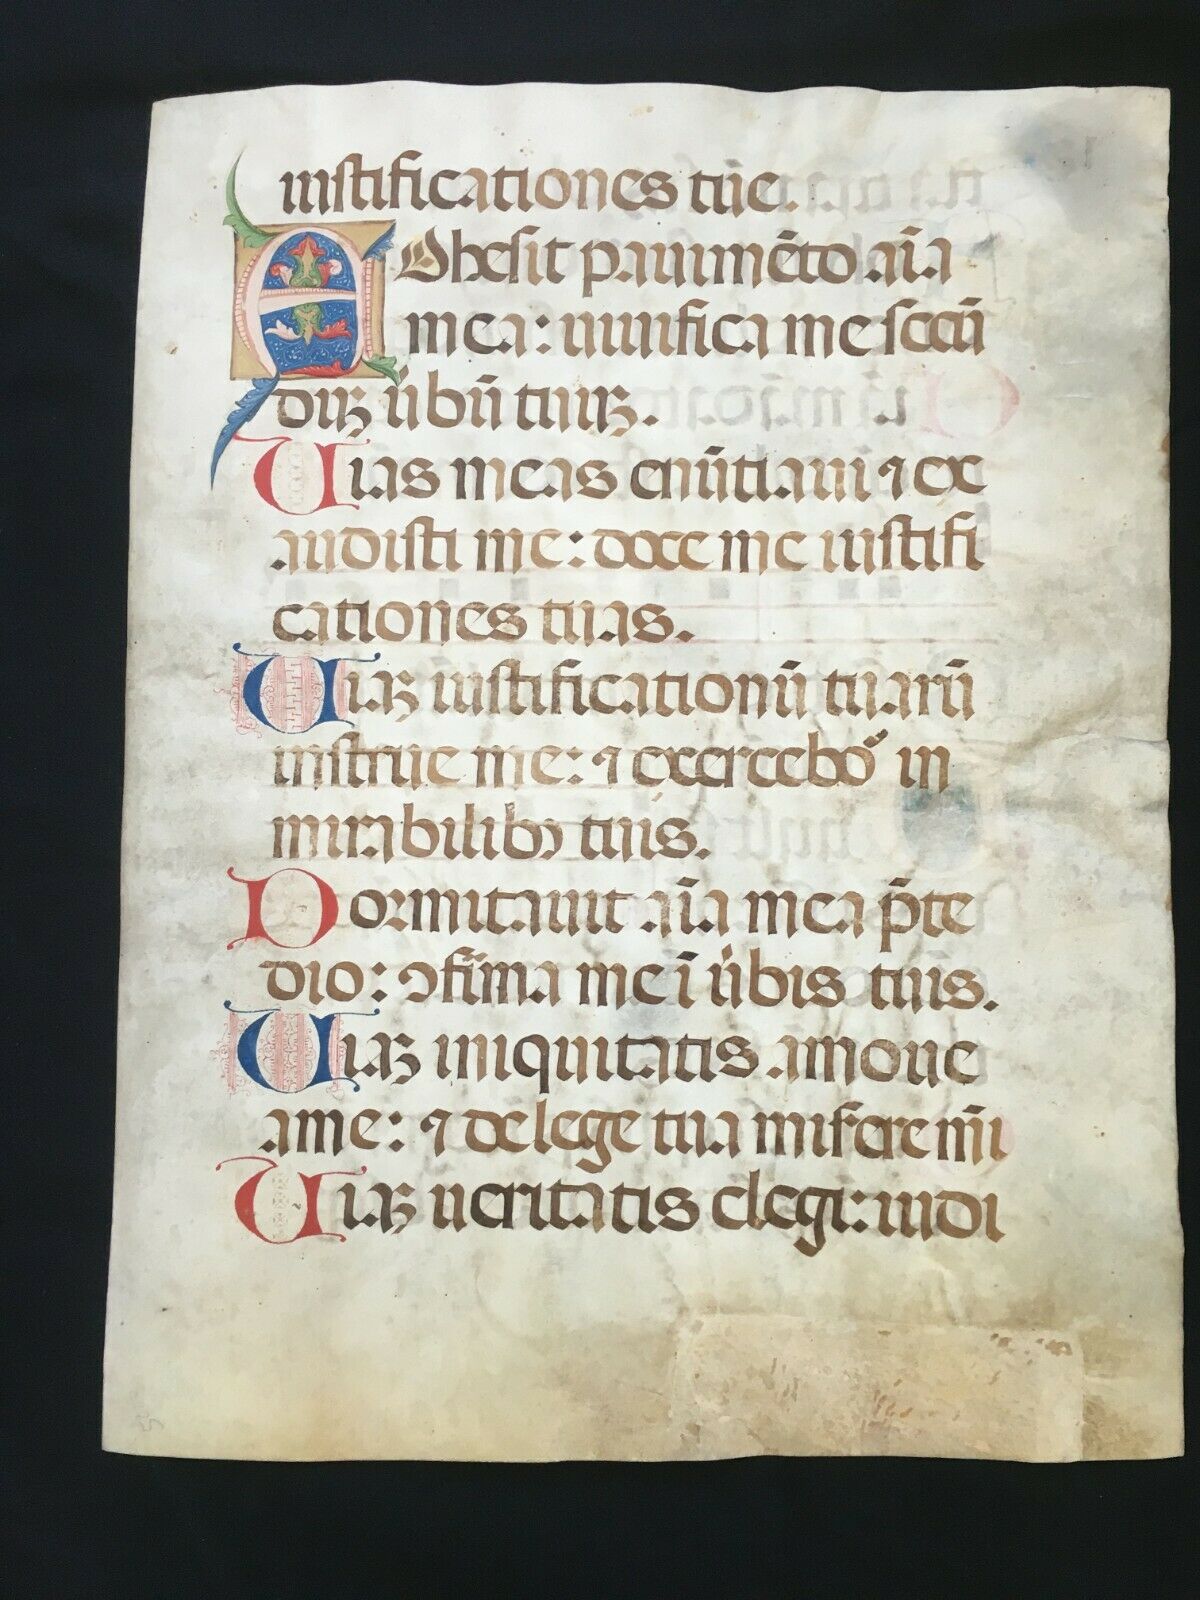 iustificationes tue.
ADhesit pauimēto aīa
mea: uiuifica me secū
dũ ũbũ tuũ.
Uias meas enūtiaui ⁊ ex
audisti me: doce me iustifi
cationes tuas.
Uiaꝫ iustificationū tuarū
instrue me: ⁊ exercebor in
mirabilibꝫ tuis.
Dormitauit aīa mea p̄te
dio: ꝯfirma me ī ũbis tuis.
Uiaꝫ iniquitatis amoue
ame: ⁊ delege tua miserere m̄i
Uiaꝫ ueritatis elegi: iudi